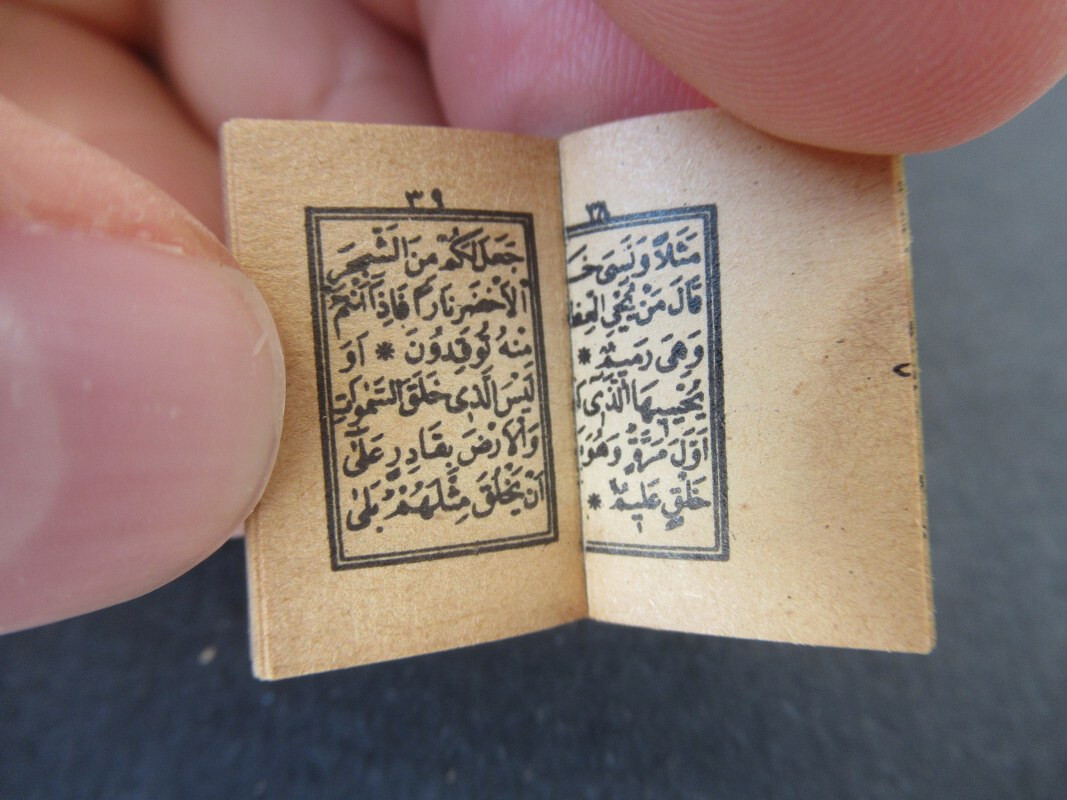 ٣٨
مَثَلًا وَنَسِىَ خَـ
قَالَ مَنْ يُحْيِ الْعِظَا
وَهِىَ رَمِيمٌ *
يُحْيِيهَا الَّذِى
اَوَّلَ مَرَّةٍ وَهُوَ
خَلْقٍ عَلِيمٌ *
٣٩
جَعَلَ لَكُمْ مِنَ الشَّجَرِ
الْاَخْضَرِ نَارًا فَاِذَا اَنْتُمْ
مِنْهُ تُوقِدُونَ * اَوَ
لَيْسَ الَّذِى خَلَقَ السَّمٰوَاتِ
وَالْاَرْضَ بِقَادِرٍ عَلٰى
اَنْ يَخْلُقَ مِثْلَهُمْ بَلٰى